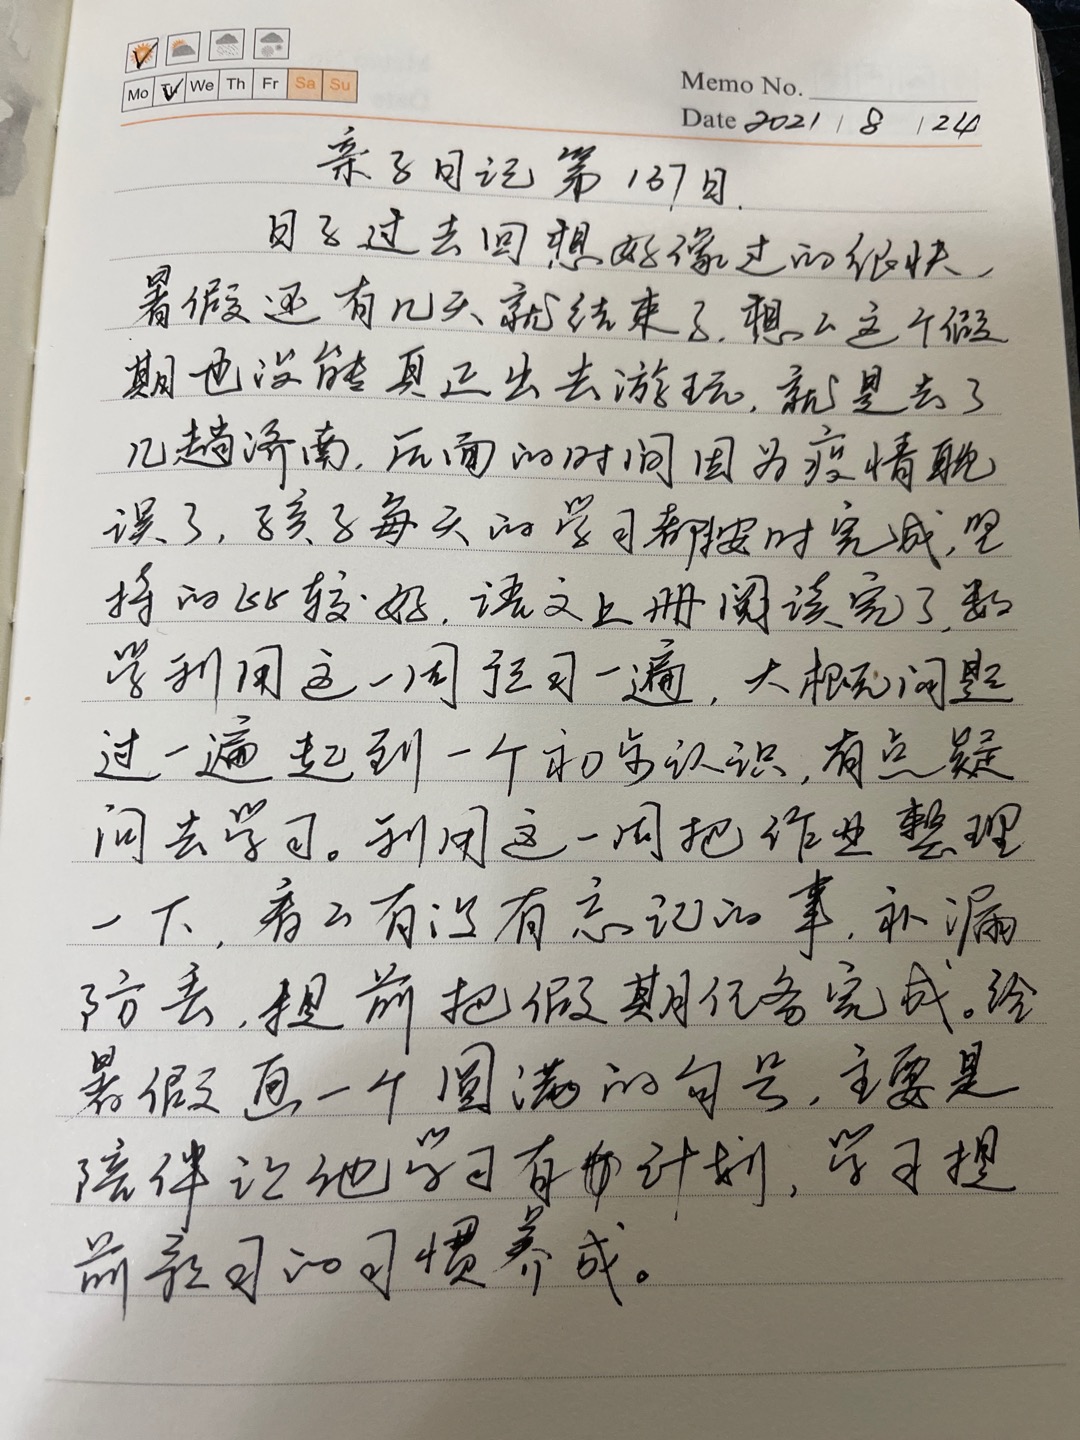 Mo Tu We Th Fr Sa Su
Memo No.
Date 2021 / 8 / 24
亲子日记第137日.
日子过去回想好像过的很快、
暑假还有几天就结束了.想么这个假
期也没能真正出去游玩,就是去了
几趟济南.后面的时间因为疫情耽
误了,孩子每天的学习都按时完成,坚
持的比较好.语文上册阅读完了,数
学利用这一周预习一遍,大概问题
过一遍起到一个初步认识,有点疑
问去学习。利用这一周把作业整理
一下,看么有没有忘记的事.补漏
防丢,提前把假期任务完成。给
暑假画一个圆满的句号,主要是
陪伴让他学习有计划,学习提
前预习的习惯养成。